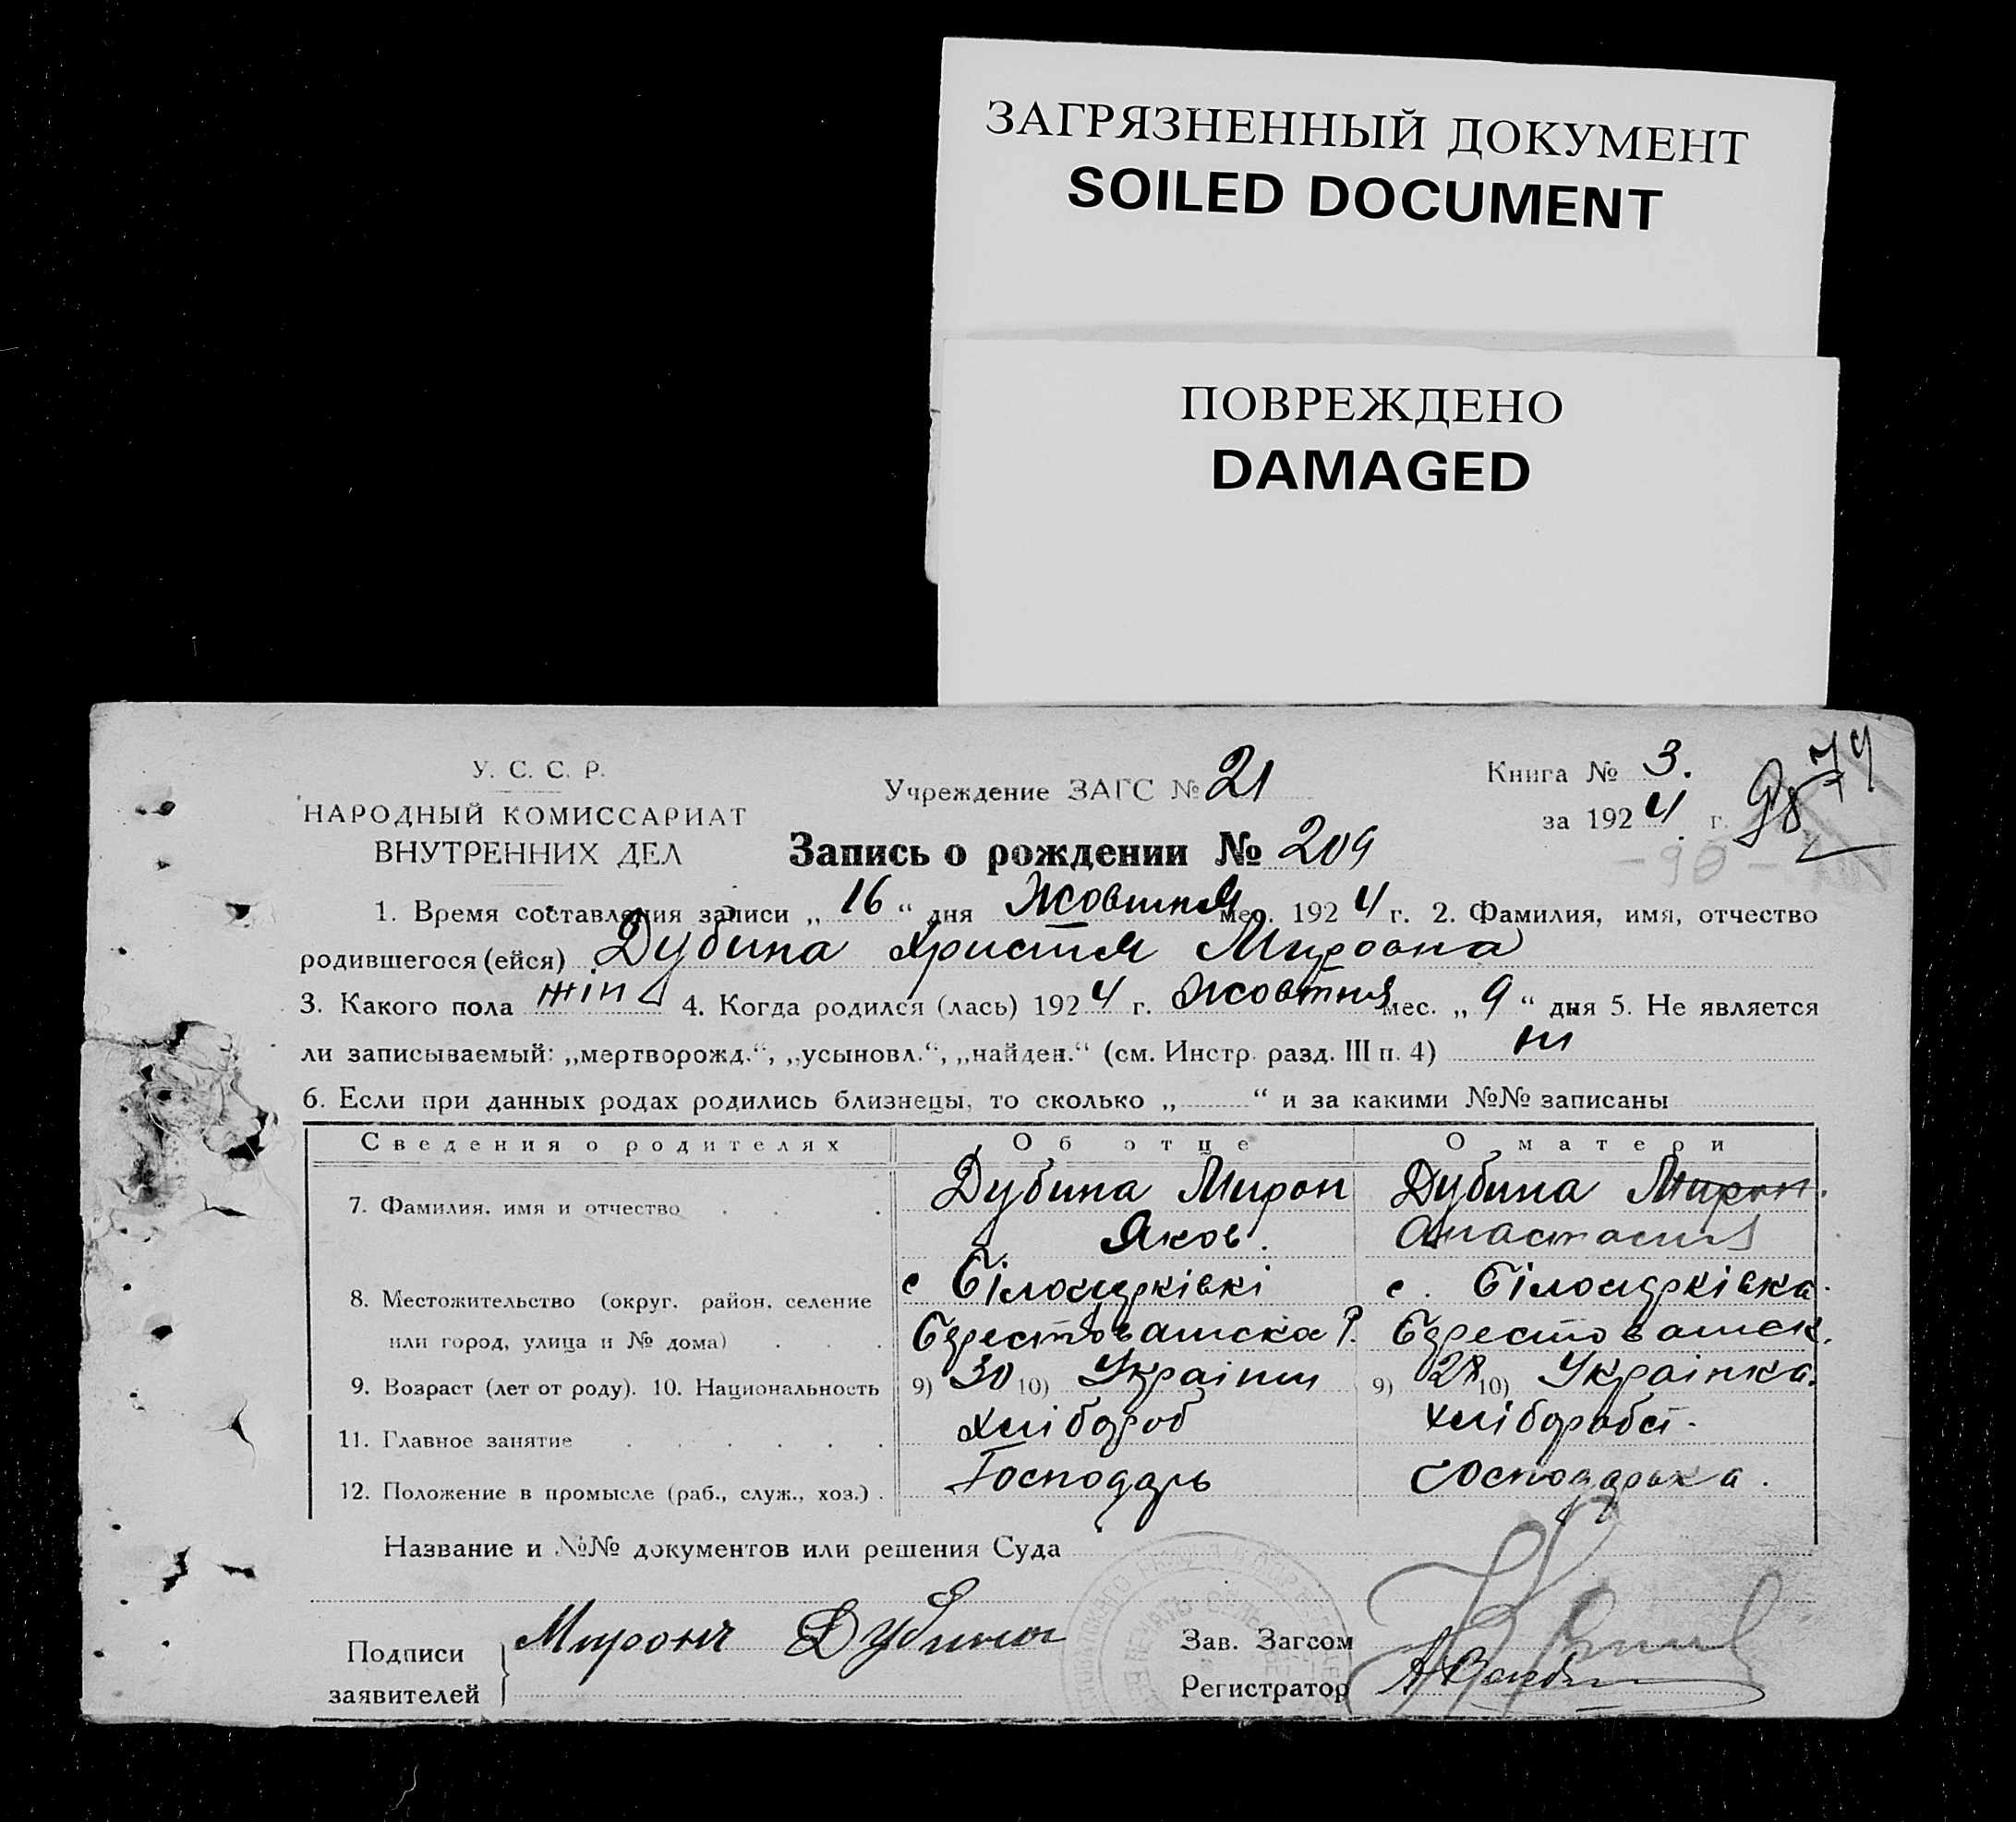 ЗАГРЯЗНЕННЫЙ ДОКУМЕНТ
SOILED DOCUMENT
ПОВРЕЖДЕНО
DAMAGED
У. С. С. Р.
НАРОДНЫЙ КОМИССАРИАТ
ВНУТРЕННИХ ДЕЛ
Учреждение ЗАГС № 21
Книга № 3.
за 1924 г.
Запись о рождении № 209
1. Время составления записи „16“ дня Жовтня мес. 1924 г. 2. Фамилия, имя, отчество
родившегося (ейся) Дубина Христя Мировна
3. Какого пола жін 4. Когда родился (лась) 1924 г. Жовтня мес. „9“ дня 5. Не является
ли записываемый: „мертворожд.“, „усыновл.“, „найден.“ (см. Инстр. разд. III п. 4) ні
6. Если при данных родах родились близнецы, то сколько „ “ и за какими №№ записаны
Сведения о родителях Об отце О матери
7. Фамилия, имя и отчество Дубина Мирон Дубина Мирон.
Яков. Анастасия
с Білоцерківкі с. Білоцерківка.
8. Местожительство (округ, район, селение
или город, улица и № дома) Берестоватска Р. Берестоватск.
9. Возраст (лет от роду). 10. Национальность 9) 30 10) Україн 9) 28 10) Українка.
11. Главное занятие Хлібороб хліборобст.
12. Положение в промысле (раб., служ., хоз.) Господарь Господарька.
Название и №№ документов или решения Суда
Подписи
заявителей
Миронъ Дубина
Зав. Загсом
Регистратор